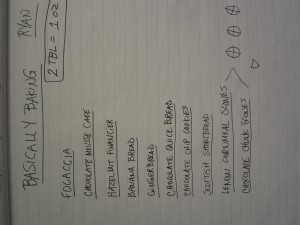 BASICALLY BAKING
RYAN
2 TBL = 1 OZ
FOCACCIA
CHOCOLATE MOUSSE CAKE
HAZELNUT FINANCIER
BANANA BREAD
GINGERBREAD
CHOCOLATE QUICK BREAD
CHOCOLATE CHIP COOKIES
SCOTTISH SHORTBREAD
LEMON CORNMEAL SCONES
CHOCOLATE CHUNK SCONES